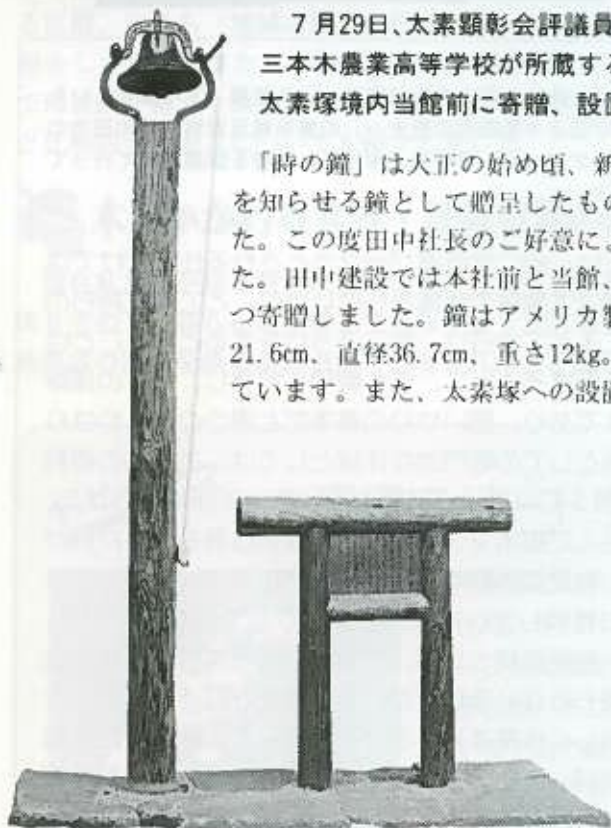 7月29日、太素顕彰会評議員
三本木農業高等学校が所蔵する
太素塚境内当館前に寄贈、設置
「時の鐘」は大正の始め頃、新
を知らせる鐘として贈呈したもの
た。この度田中社長のご好意によ
た。田中建設では本社前と当館、
つ寄贈しました。鐘はアメリカ製
21.6cm、直径36.7cm、重さ12kg。
ています。また、太素塚への設置